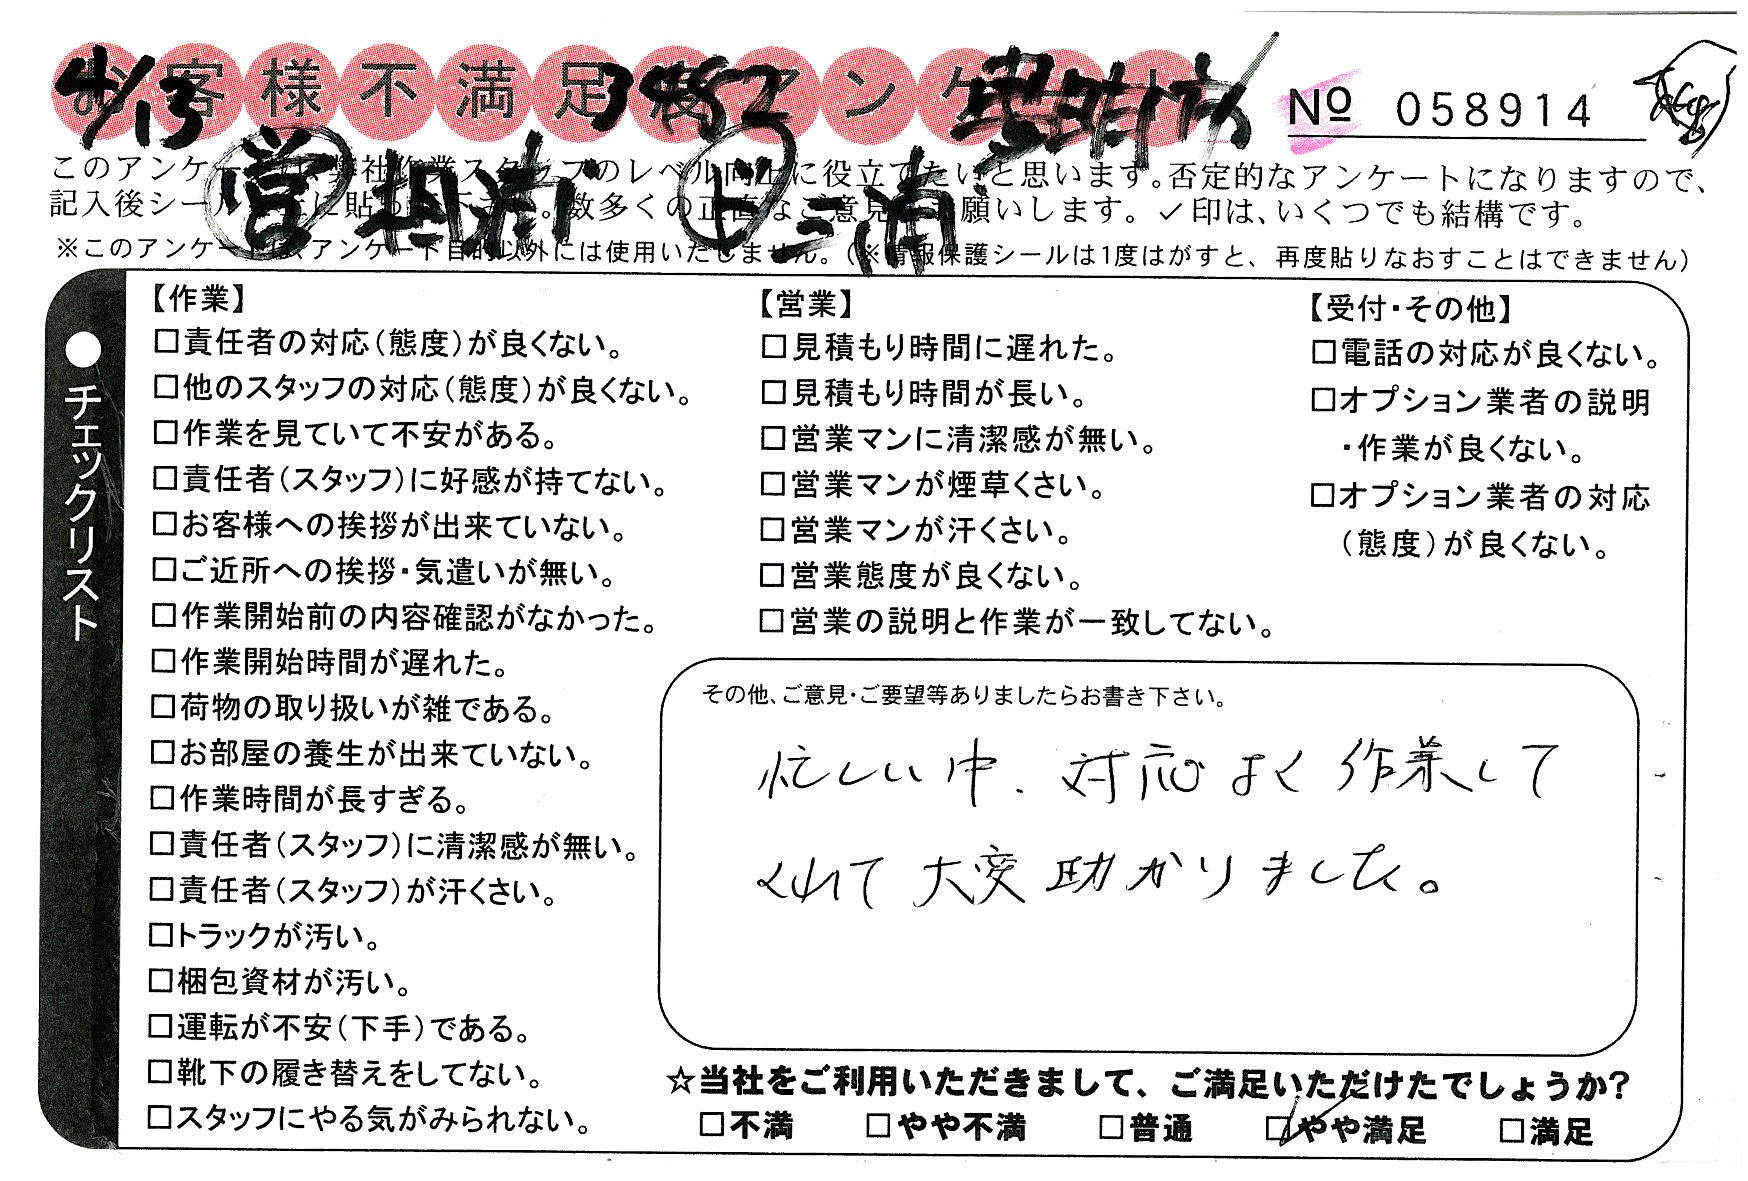 お客様不満足度アンケート
4/13 3452
№ 058914
このアンケートは、弊社作業スタッフのレベル向上に役立てたいと思います。否定的なアンケートになりますので、
記入後シールを上に貼って下さい。数多くの正直なご意見をお願いします。✓印は、いくつでも結構です。
※このアンケートは、アンケート目的以外には使用いたしません。(※情報保護シールは1度はがすと、再度貼りなおすことはできません)
営 上 三浦
●チェックリスト
【作業】
□責任者の対応(態度)が良くない。
□他のスタッフの対応(態度)が良くない。
□作業を見ていて不安がある。
□責任者(スタッフ)に好感が持てない。
□お客様への挨拶が出来ていない。
□ご近所への挨拶・気遣いが無い。
□作業開始前の内容確認がなかった。
□作業開始時間が遅れた。
□荷物の取り扱いが雑である。
□お部屋の養生が出来ていない。
□作業時間が長すぎる。
□責任者(スタッフ)に清潔感が無い。
□責任者(スタッフ)が汗くさい。
□トラックが汚い。
□梱包資材が汚い。
□運転が不安(下手)である。
□靴下の履き替えをしてない。
□スタッフにやる気がみられない。
【営業】
□見積もり時間に遅れた。
□見積もり時間が長い。
□営業マンに清潔感が無い。
□営業マンが煙草くさい。
□営業マンが汗くさい。
□営業態度が良くない。
□営業の説明と作業が一致してない。
【受付・その他】
□電話の対応が良くない。
□オプション業者の説明
・作業が良くない。
□オプション業者の対応
(態度)が良くない。
その他、ご意見・ご要望等ありましたらお書き下さい。
忙しい中、対応よく作業して
くれて大変助かりました。
☆当社をご利用いただきまして、ご満足いただけたでしょうか?
□不満 □やや不満 □普通 ☑やや満足 □満足